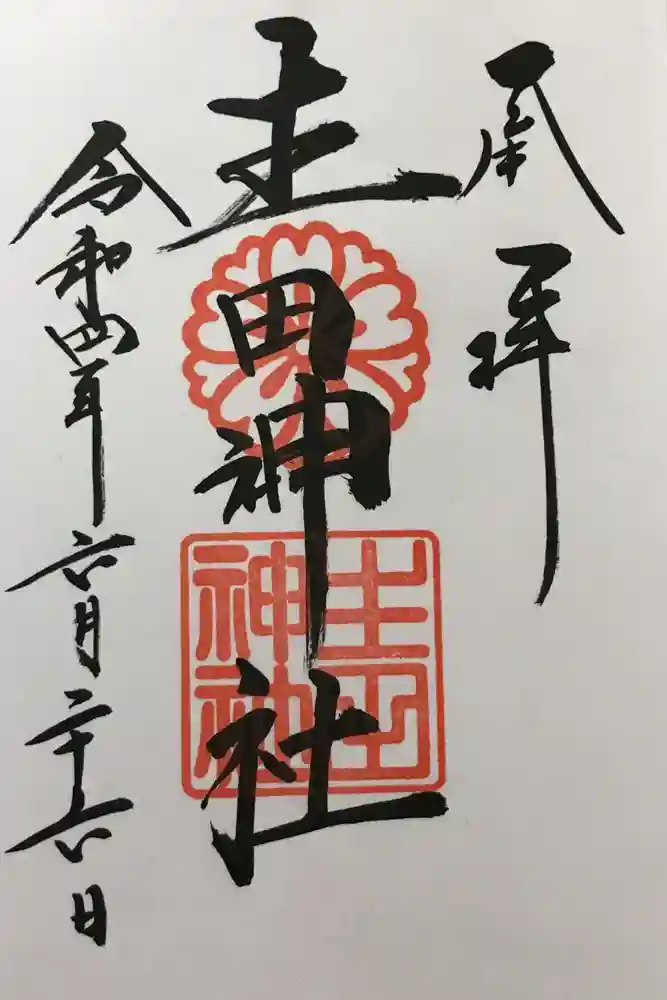 奉拝
生田神社
令和四年六月二十六日
生田
神社